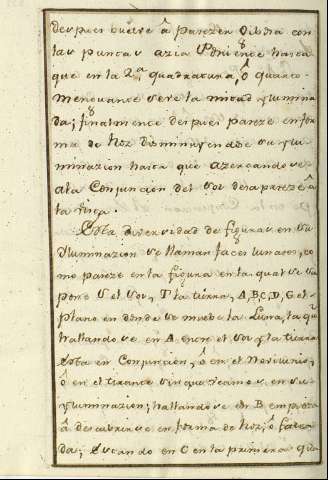 despues buelve â parezer dibha con
las puntas azia Poniente hasta
que en la 2.ª quadratura, ô quarto
menguante se ve la mitad yluminâ
da; finalmente despues pareze en for
ma de hoz disminuyendose su ylu
minazion hasta que azercandose
a la Conjuncion del Sol desapareze â
la vista.
Esta diversidad de figuras en su
Yluminazion se llaman fazes lunares, co
mo pareze en la figura en la qual se su
pone S el Sol, T la tierra, A, B, C, D, G el
plano en donde se mueve la Luna, la q.
hallandose en A entre el Sol y la tierra
esta en Conjuncion, ô en el Novilunio,
ô en el sin que veamos en su
yluminazion; hallandose en B empieza
â descubrirse en forma de hoz, ô
da; estando en C en la primera qua